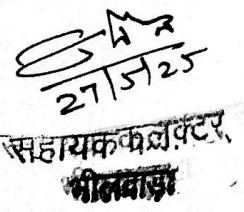 27/5/25
सहायक कलेक्टर,
भीलवाड़ा